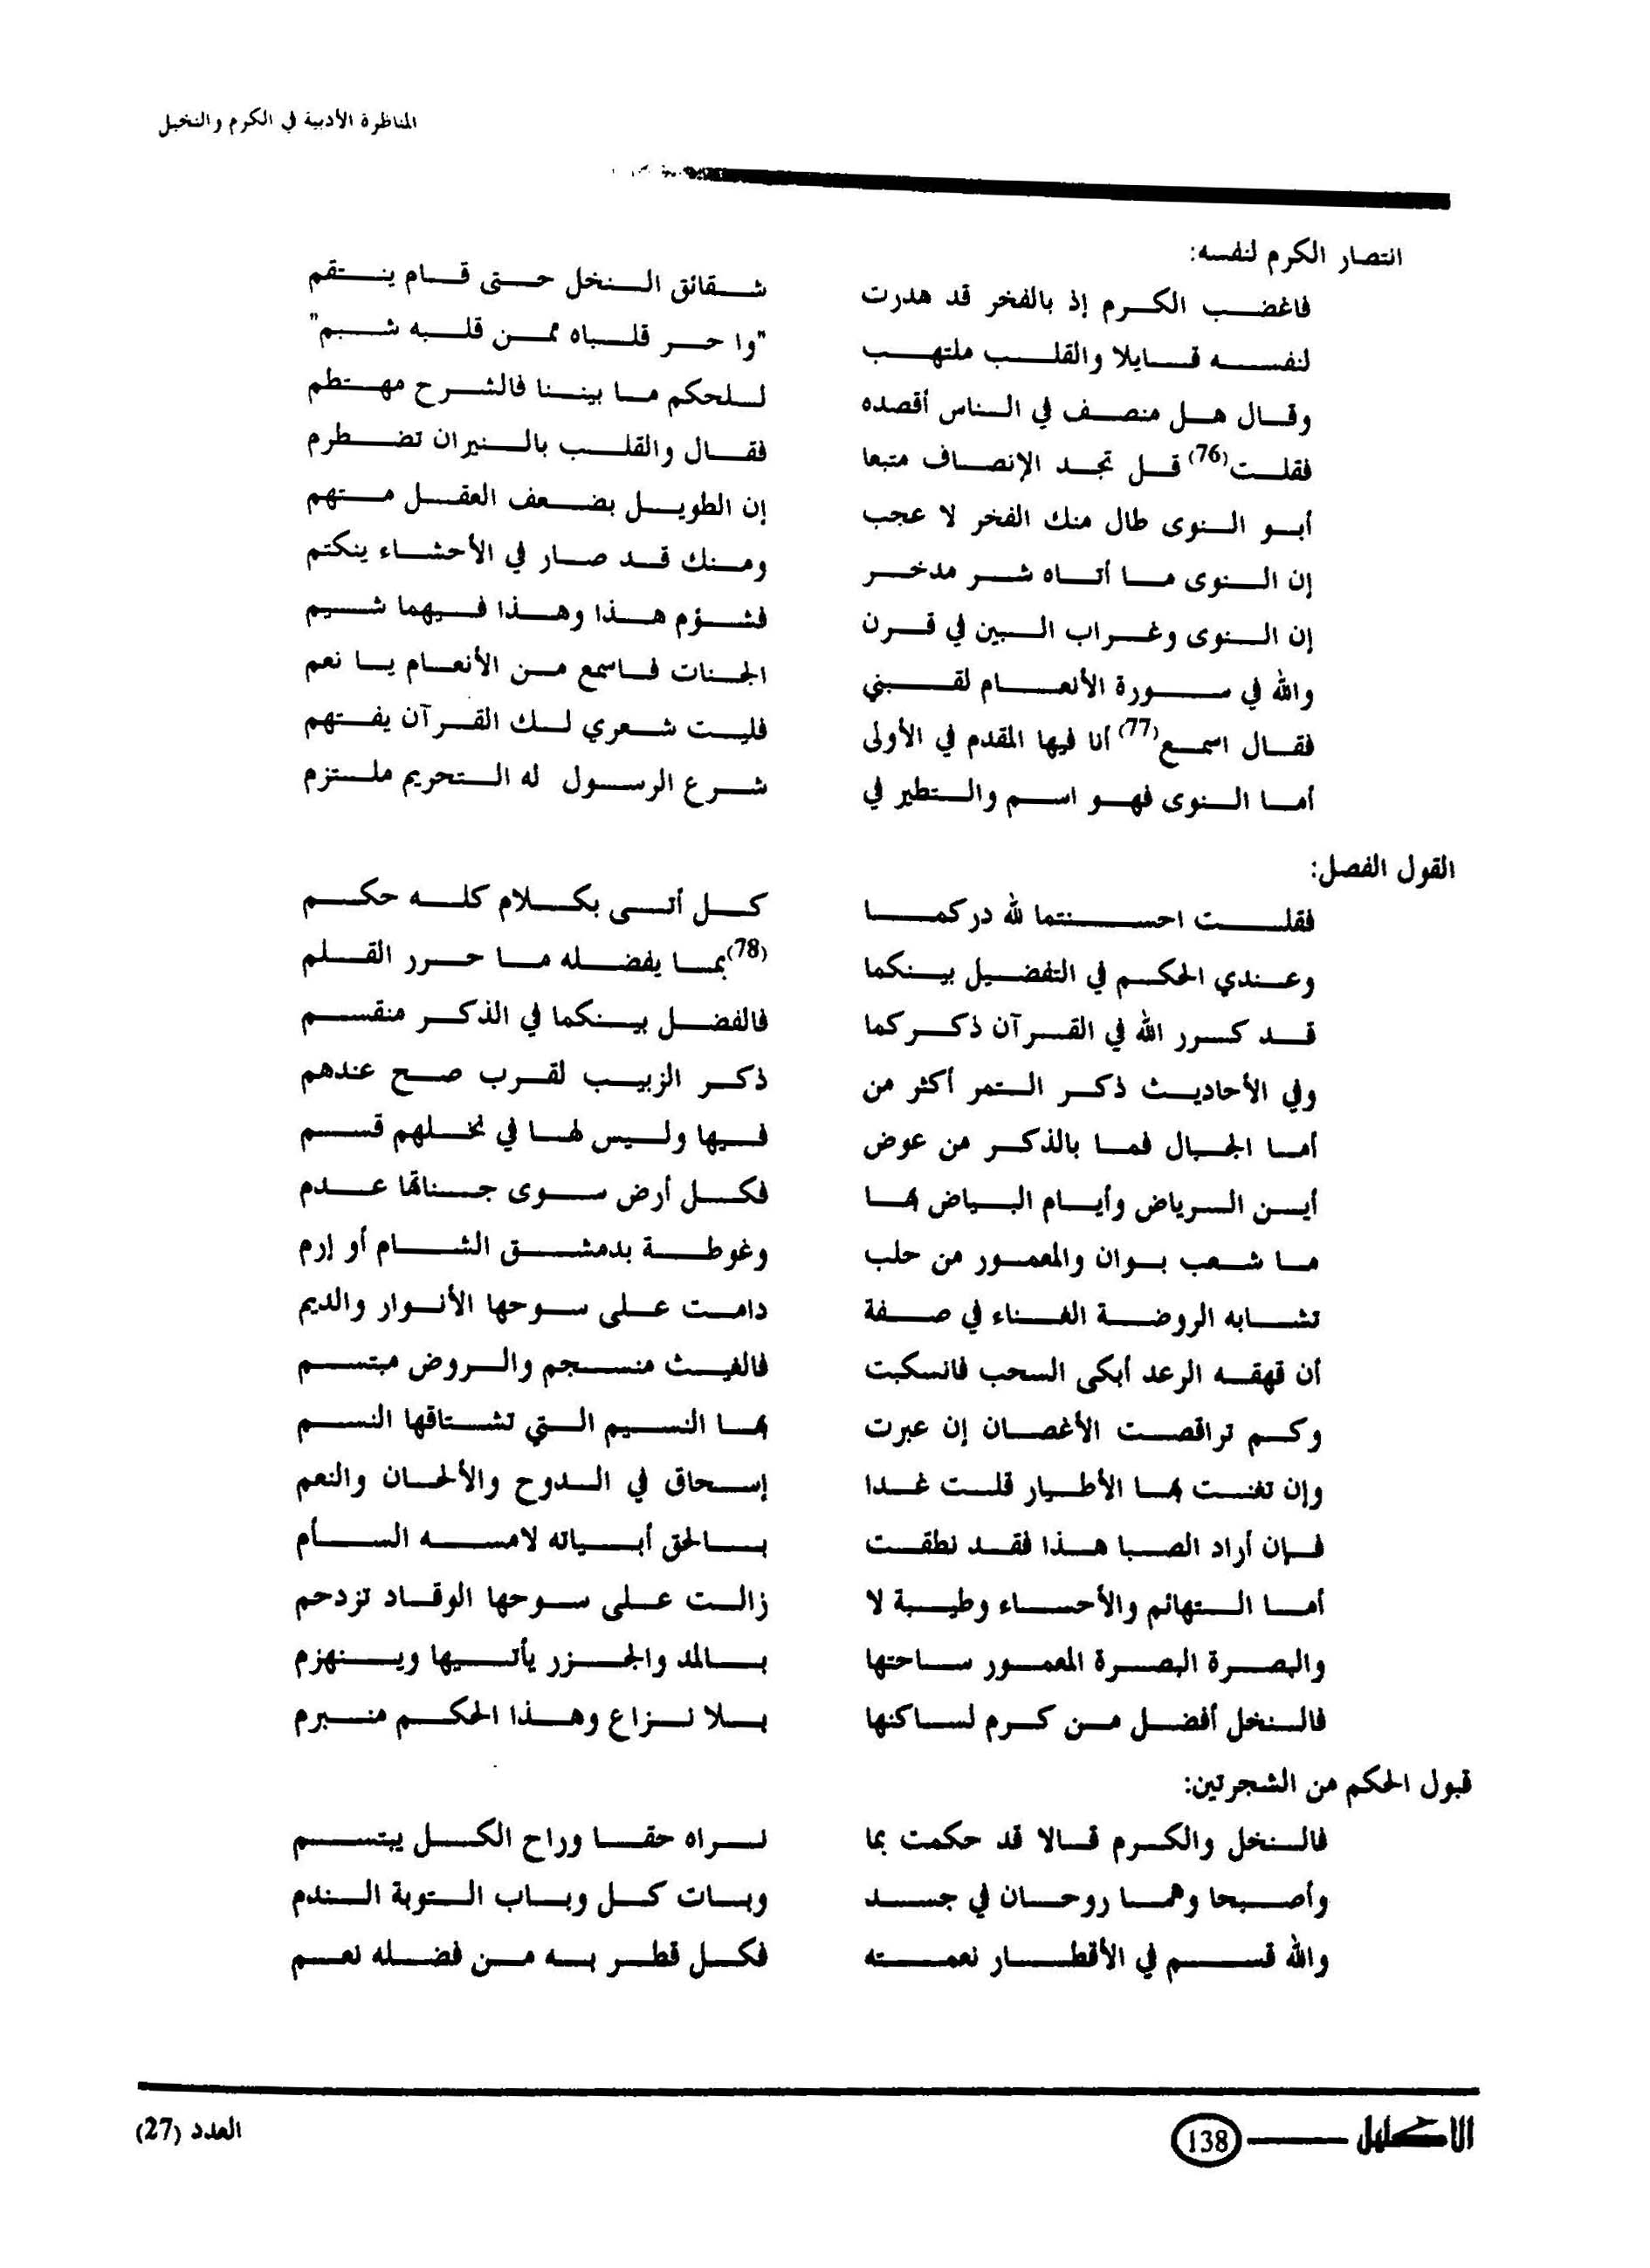 المناظرة الأدبية في الكرم والنخيل
انتصار الكرم لنفسه:
فاغضب الكرم إذ بالفخر قد هدرت شقائق النخل حتى قام ينتقم
لنفسه قايلا والقلب ملتهب "وا حر قلباه ممن قلبه شبم"
وقال هل منصف في الناس أقصده للحكم ما بيننا فالشرح مهتطم
فقلت(76) قل تجد الإنصاف متبعا فقال والقلب بالنيران تضطرم
أبو النوى طال منك الفخر لا عجب إن الطويل بضعف العقل متهم
إن النوى ما أتاه شر مدخر ومنك قد صار في الأحشاء ينكتم
إن النوى وغراب البين في قرن فشؤم هذا وهذا فيهما شيم
والله في سورة الأنعام لقبني الجنات فاسمع من الأنعام يا نعم
فقال اسمع(77) أنا فيها المقدم في الأولى فليت شعري لك القرآن يفتهم
أما النوى فهو اسم والتطير في شرع الرسول له التحريم ملتزم
القول الفصل:
فقلت احسنتما لله دركما كل أتى بكلام كله حكم
وعندي الحكم في التفضيل بينكما (78)بما يفضله ما حرر القلم
قد كرر الله في القرآن ذكركما فالفضل بينكما في الذكر منقسم
وفي الأحاديث ذكر التمر أكثر من ذكر الزبيب لقرب صح عندهم
أما الجبال فما بالذكر من عوض فيها وليس لها في نخلهم قسم
أين الرياض وأيام البياض بها فكل أرض سوى جناتها عدم
ما شعب بوان والمعمور من حلب وغوطة بدمشق الشام أو إرم
تشابه الروضة الغناء في صفة دامت على سوحها الأنوار والديم
أن قهقه الرعد أبكى السحب فانسكبت فالغيث منسجم والروض مبتسم
وكم تراقصت الأغصان إن عبرت بها النسيم التي تشتاقها النسم
وإن تغنت بها الأطيار قلت غدا إسحاق في الدوح والألحان والنعم
فإن أراد الصبا هذا فقد نطقت بالحق أبياته لامسه السأم
أما التهائم والأحساء وطيبة لا زالت على سوحها الوقاد تزدحم
والبصرة البصرة المعمور ساحتها بالمد والجزر يأتيها وينهزم
فالنخل أفضل من كرم لساكنها بلا نزاع وهذا الحكم منبرم
قبول الحكم من الشجرتين:
فالنخل والكرم قالا قد حكمت بما نراه حقا وراح الكل يبتسم
وأصبحا وهما روحان في جسد وبات كل وباب التوبة الندم
والله قسم في الأقطار نعمته فكل قطر به من فضله نعم
الاكليل 138 العدد (27)